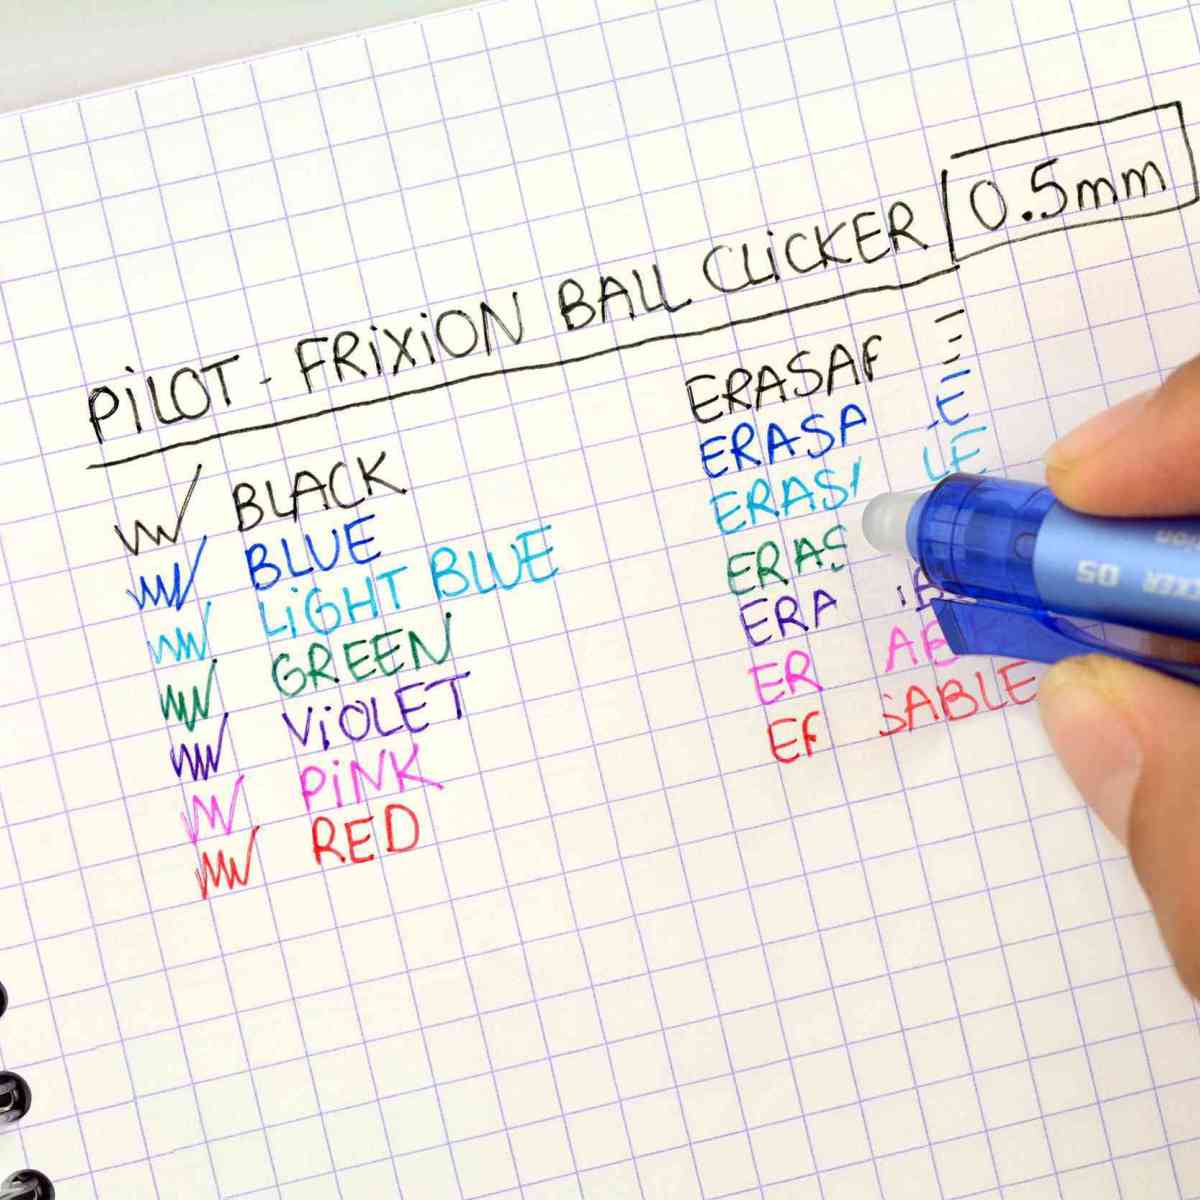 PiLOT - FRiXiON BALL CLiCKER 0.5mm
BLACK
BLUE
LiGHT BLUE
GREEN
ViOLET
PiNK
RED
ERASA
ERASA E
ERAS LE
ERAS
ERA
ER AB
E SABLE
05